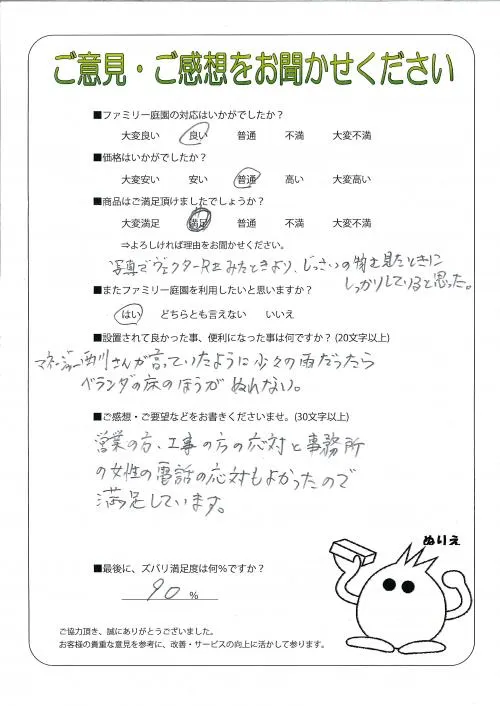 ご意見・ご感想をお聞かせください
■ファミリー庭園の対応はいかがでしたか？
大変良い 良い 普通 不満 大変不満
■価格はいかがでしたか？
大変安い 安い 普通 高い 大変高い
■商品はご満足頂けましたでしょうか？
大変満足 満足 普通 不満 大変不満
⇒よろしければ理由をお聞かせください。
写真でヴェクターRをみたときより、じっさいの物を見たときに
しっかりしていると思った。
■またファミリー庭園を利用したいと思いますか？
はい どちらとも言えない いいえ
■設置されて良かった事、便利になった事は何ですか？(20文字以上)
マネージャー西川さんが言っていたように少々の雨だったら
ベランダの床のほうがぬれない。
■ご感想・ご要望などをお書きくださいませ。(30文字以上)
営業の方、工事の方の応対と事務所
の女性の電話の応対もよかったので
満足しています。
ぬりえ
■最後に、ズバリ満足度は何％ですか？
90 %
ご協力頂き、誠にありがとうございました。
お客様の貴重な意見を参考に、改善・サービスの向上に活かして参ります。